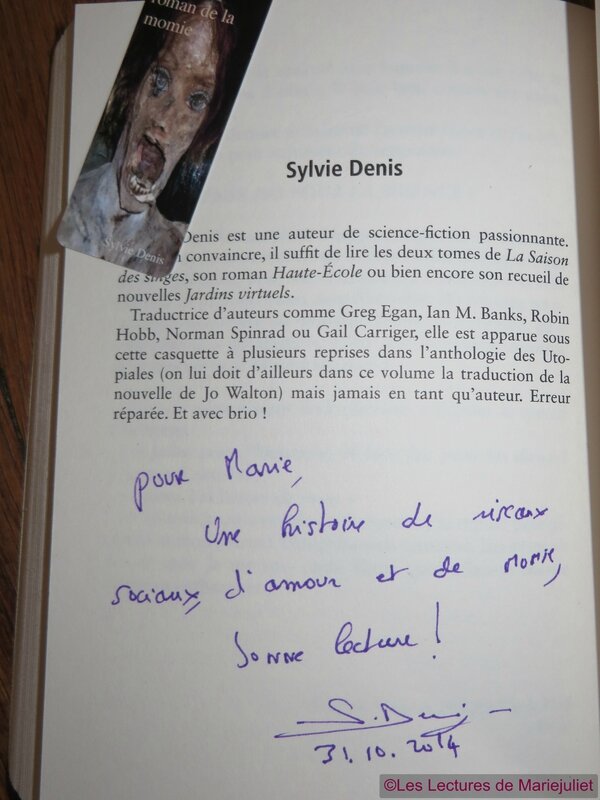 roman de la
momie
Sylvie Denis
Sylvie Denis
Denis est une auteur de science-fiction passionnante.
convaincre, il suffit de lire les deux tomes de La Saison
des singes, son roman Haute-École ou bien encore son recueil de
nouvelles Jardins virtuels.
Traductrice d'auteurs comme Greg Egan, Ian M. Banks, Robin
Hobb, Norman Spinrad ou Gail Carriger, elle est apparue sous
cette casquette à plusieurs reprises dans l'anthologie des Uto-
piales (on lui doit d'ailleurs dans ce volume la traduction de la
nouvelle de Jo Walton) mais jamais en tant qu'auteur. Erreur
réparée. Et avec brio !
pour Marie,
Une histoire de réseaux
sociaux, d'amour et de momie,
bonne lecture !
S. Denis
31.10.2014
©Les Lectures de Mariejuliet